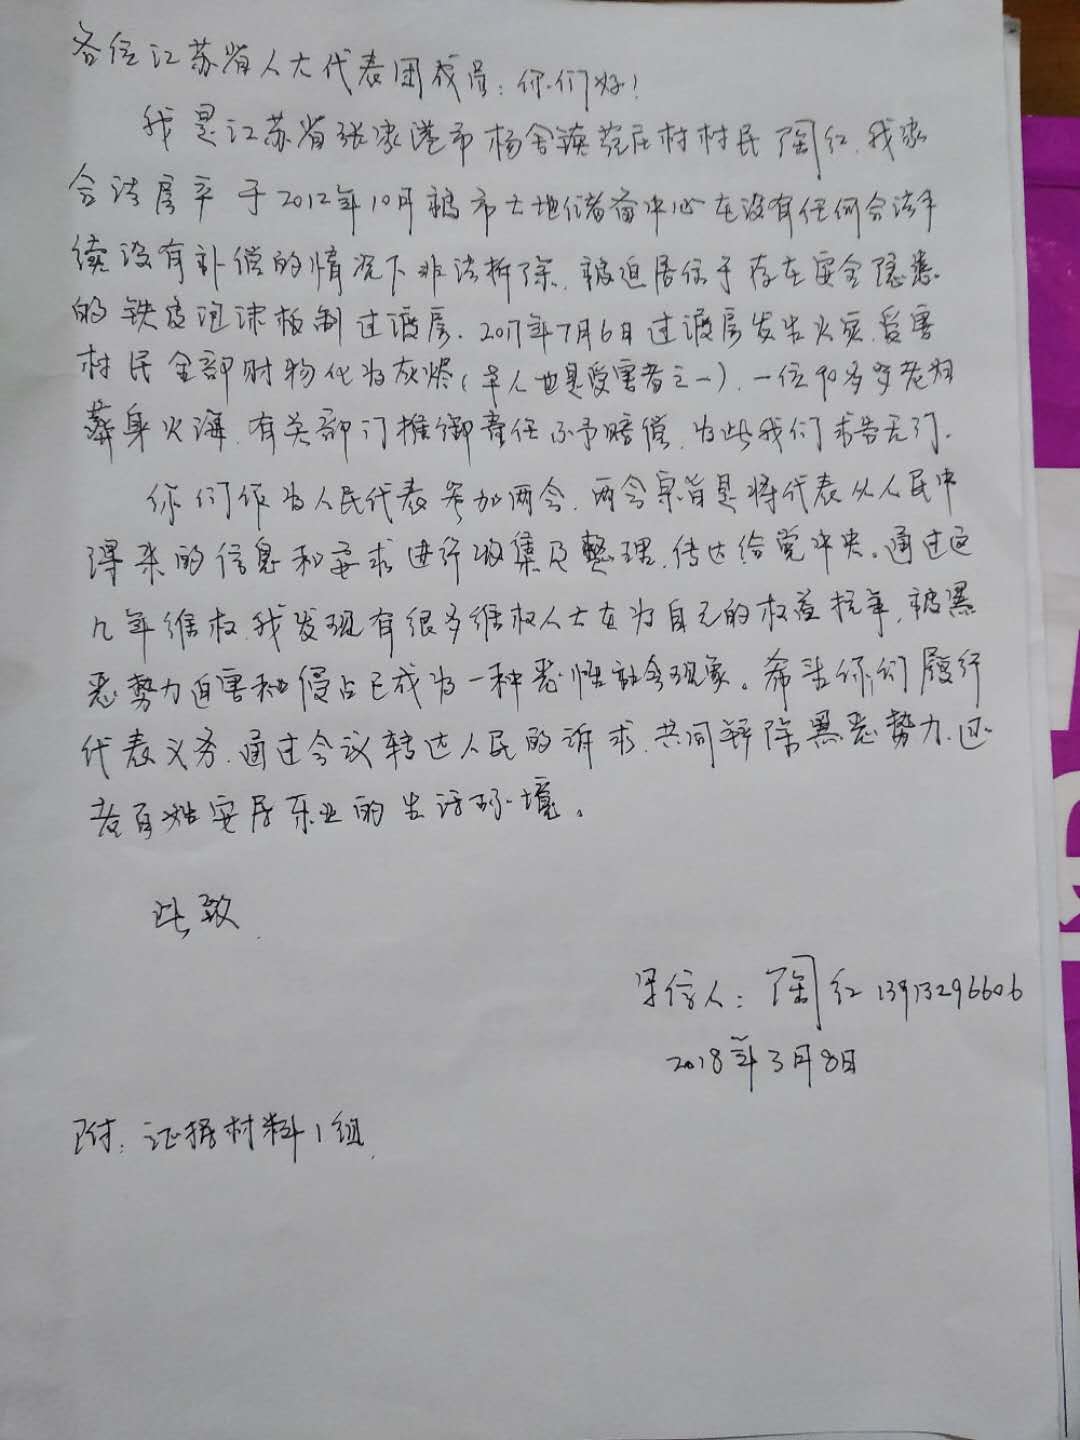 各位江苏省人大代表团成员：你们好！
我是江苏省张家港市杨舍镇范庄村村民陶红，我家
合法房产于2012年10月被市土地储备中心在没有任何合法手
续没有补偿的情况下非法拆除，被迫居住于存在安全隐患
的铁皮泡沫板制过渡房。2017年7月6日过渡房发生火灾，受害
村民全部财物化为灰烬（本人也是受害者之一），一位90多岁老妇
葬身火海，有关部门推御责任不予赔偿，为此我们求告无门。
你们作为人民代表参加两会，两会宗旨是将代表从人民中
得来的信息和要求进行收集及整理，传达给党中央。通过这
几年维权，我发现有很多维权人士在为自己的权益抗争，被黑
恶势力迫害和侵占已成为一种恶性社会现象。希望你们履行
代表义务，通过会议转达人民的诉求，共同铲除黑恶势力，还
老百姓安居乐业的生活环境。
此致
呈信人：陶红 13913296606
2018年3月8日
附：证据材料1组